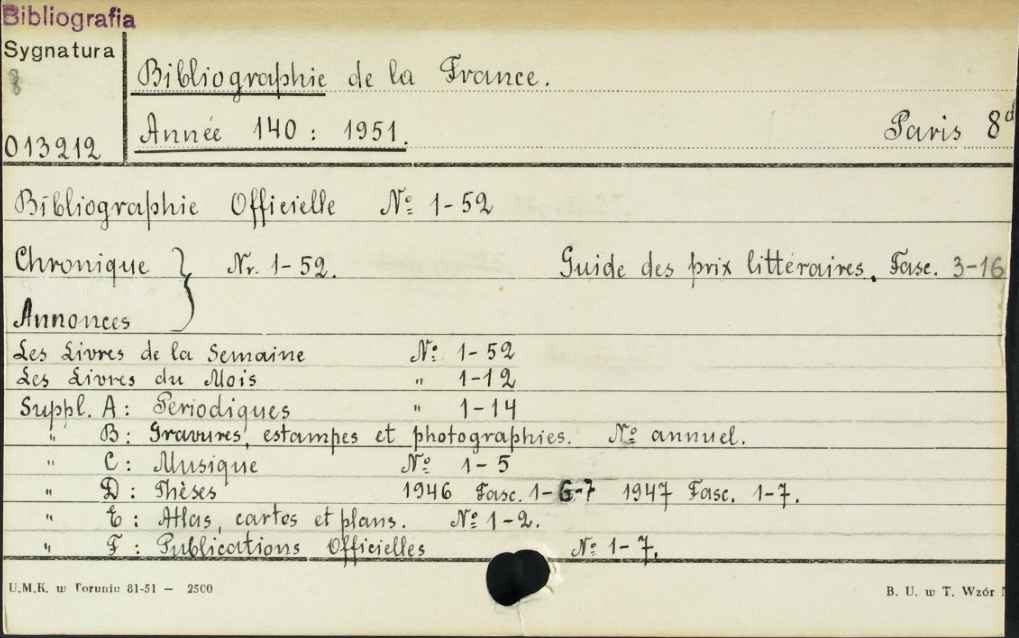 Bibliografia
Sygnatura
8
013212
Bibliographie de la France.
Année 140 : 1951.
Paris 8d
Bibliographie Officielle № 1-52
Chronique } Nr. 1-52. Guide des prix littéraires. Fasc. 3-16
Annonces
Les Livres de la Semaine № 1-52
Les Livres du Mois " 1-12
Suppl. A : Périodiques " 1-14
" B : Gravures, estampes et photographies. № annuel.
" C : Musique № 1-5
" D : Thèses 1946 Fasc. 1-6-7 1947 Fasc. 1-7.
" E : Atlas, cartes et plans. № 1-2.
" F : Publications Officielles № 1-7.
U.M.K. w Toruniu 81-51 — 2500
B. U. w T. Wzór